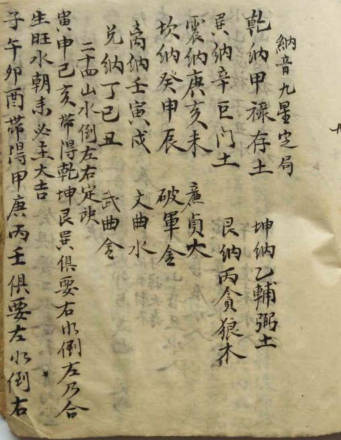 納音九星定局
乾納甲祿存土　坤納乙輔弼土
巽納辛巨门土　艮納丙貪狼木
震納庚亥未　廉貞火
坎納癸申辰　破軍金
离納壬寅戌　文曲水
兑納丁巳丑　武曲金
二十四山水倒左右定訣
寅申巳亥帶得乾坤艮巽俱要右水倒左乃合
生旺水朝来必主大吉
子午卯酉帶得甲庚丙壬俱要左水倒右